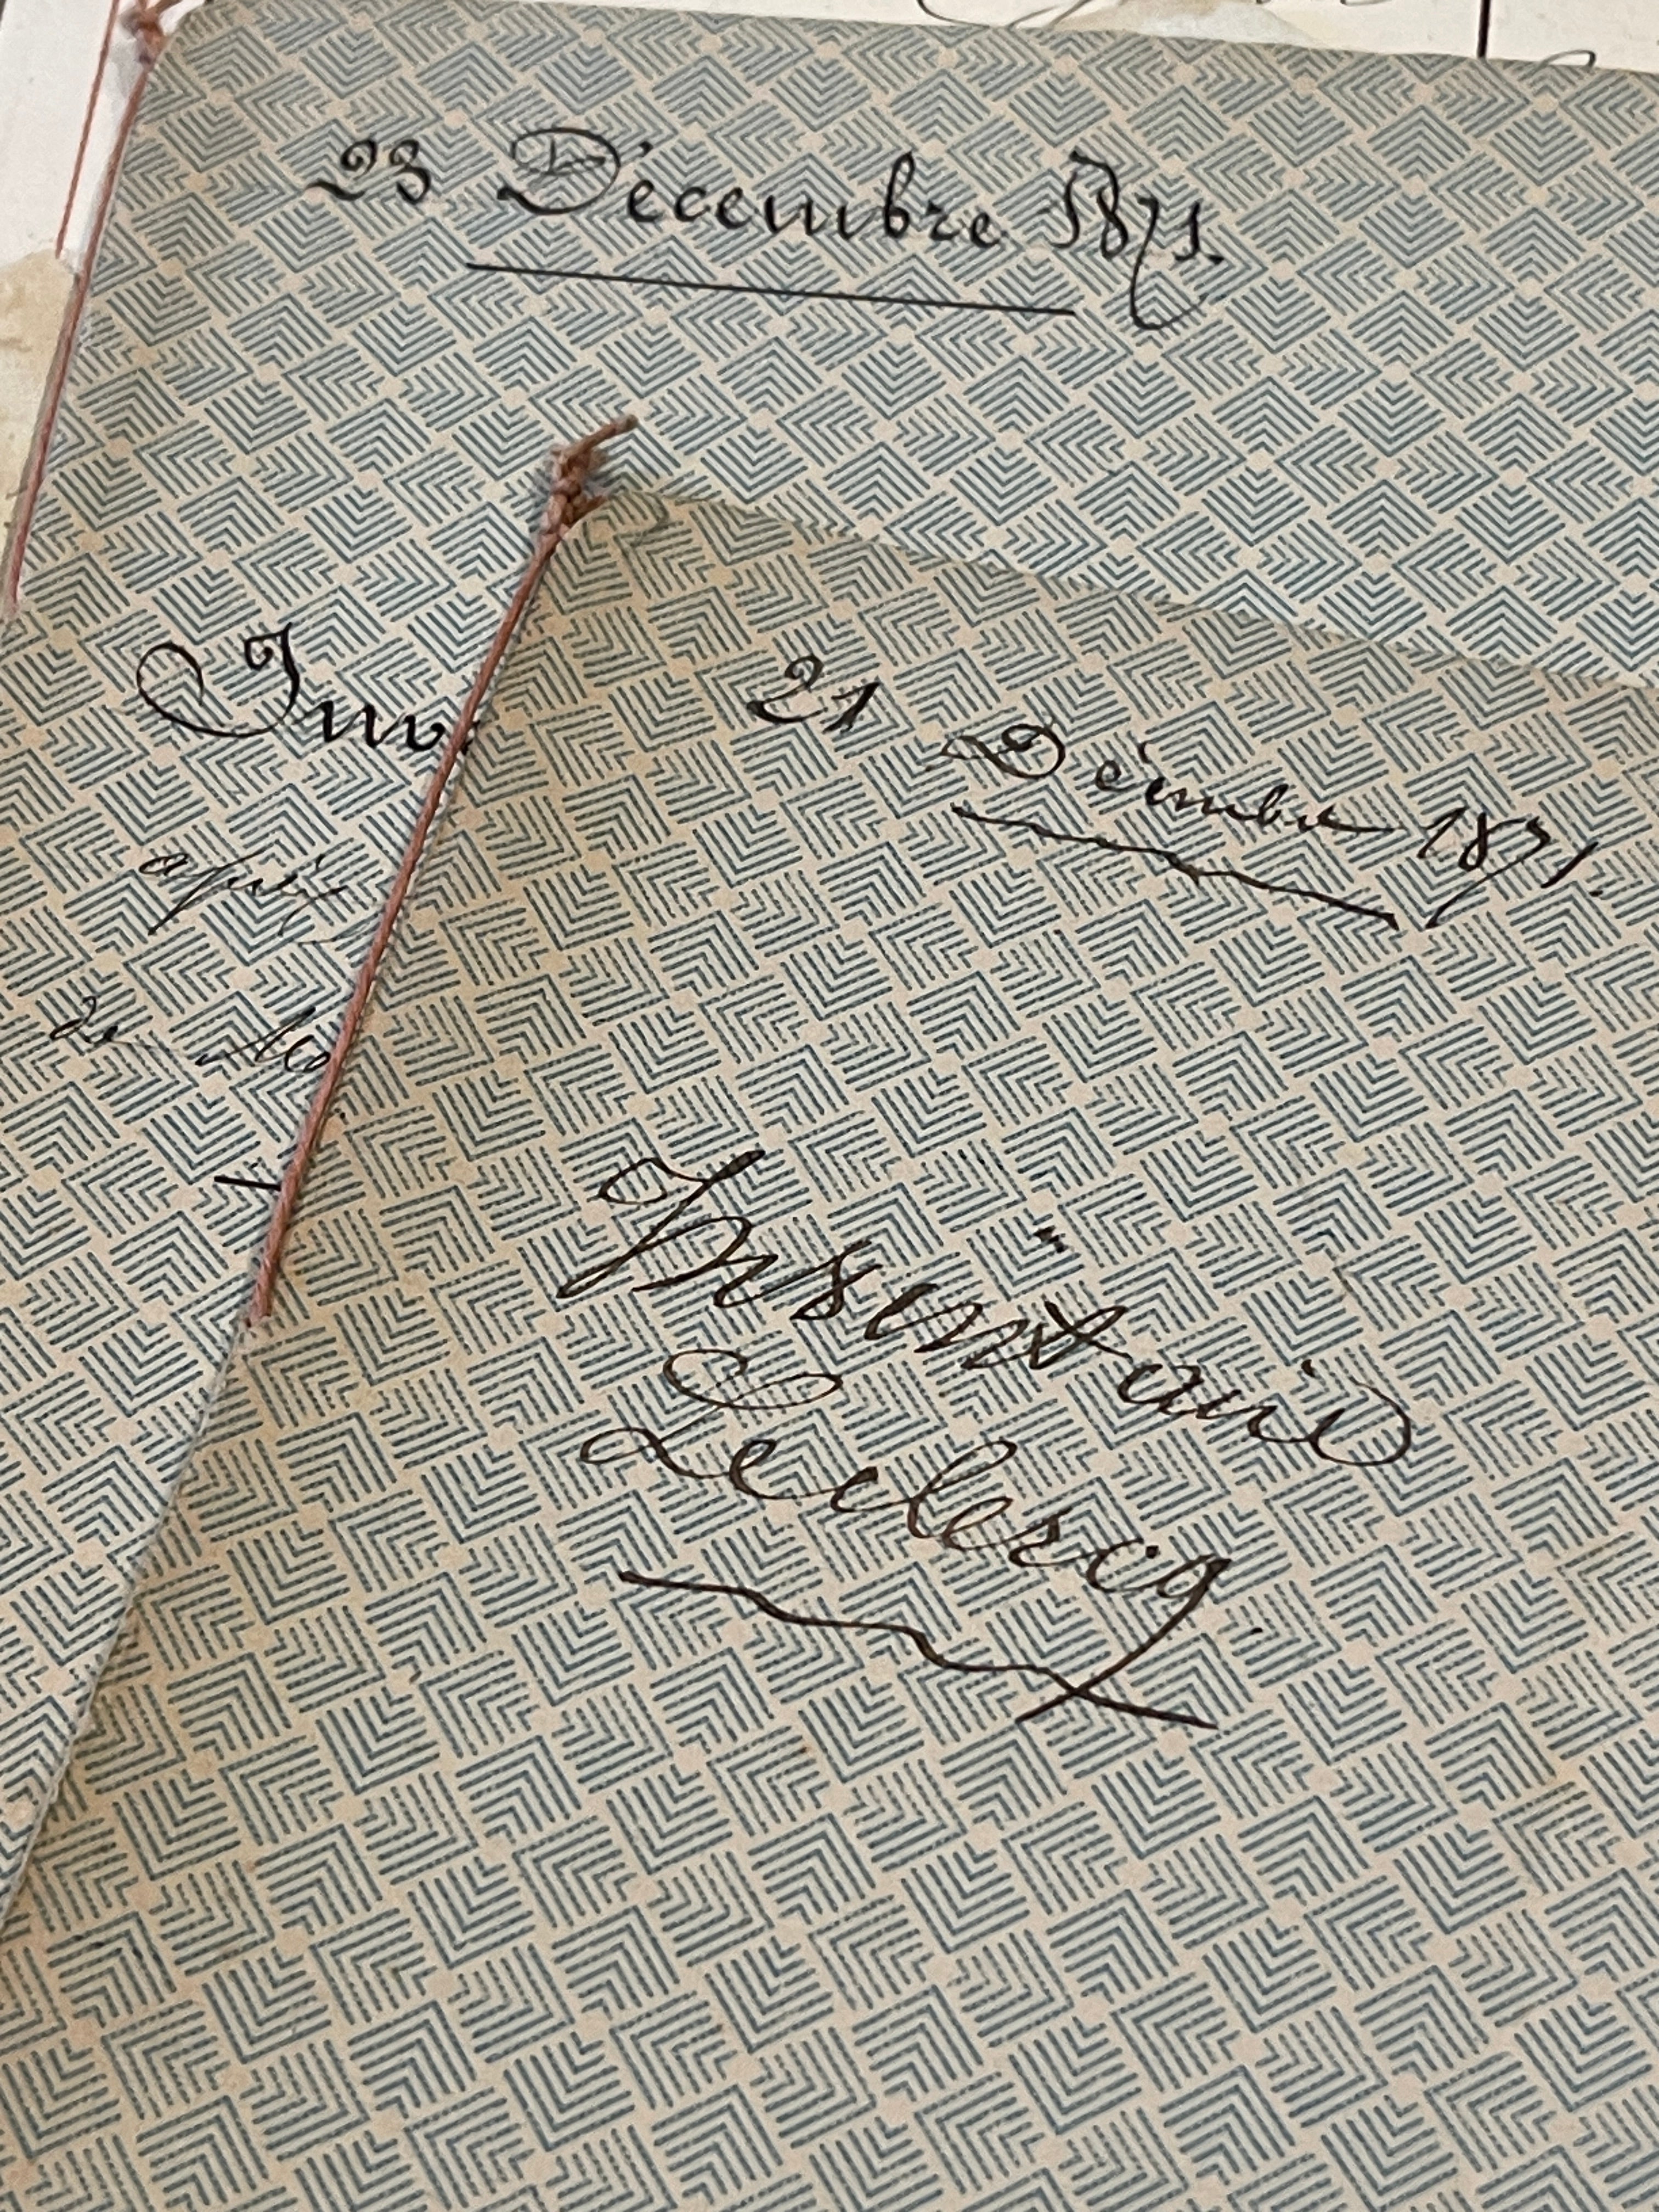 23 Décembre 1871.
Inv
après
de
21 Décembre 1871.
Inventaire
Leclercq.